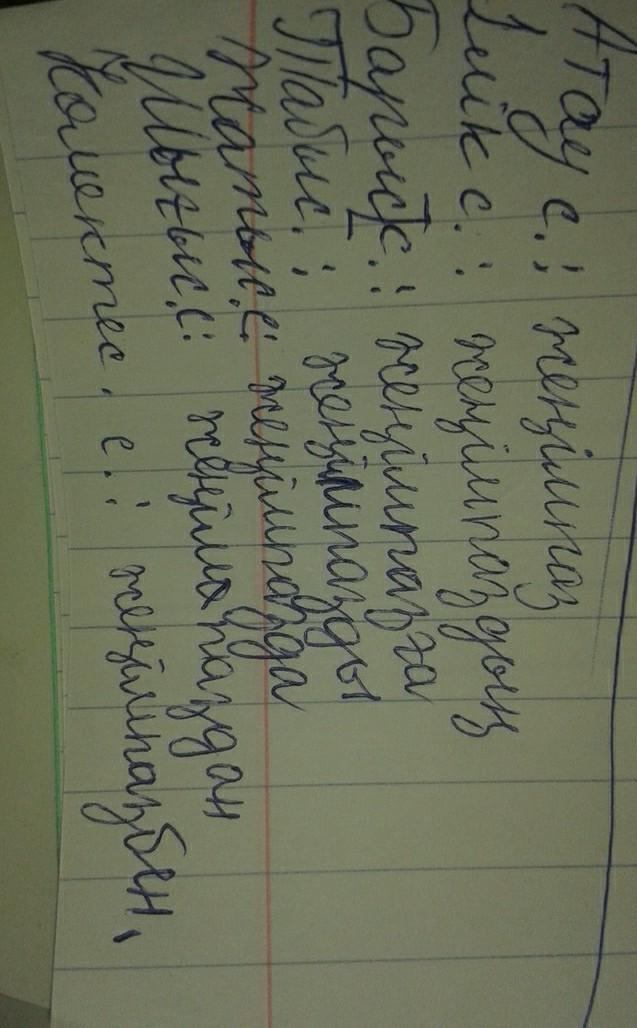 Атау с.: жеңілпаз
Ілік с.: жеңілпаздың
Барыс с.: жеңілпазға
Табыс.: жеңілпазды
Жатыс.с: жеңілпазда
Шығыс.с: жеңілпаздан
Көмектес. с.: жеңілпазбен,